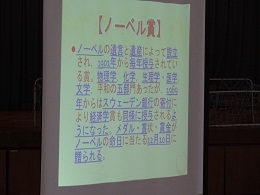 【ノーベル賞】
●ノーベルの遺言と遺産によって設立
され、1901年から毎年授与されてい
る賞。物理学、化学、生理学・医学、
文学、平和の五部門あったが、1969
年からはスウェーデン銀行の寄付に
より経済学賞も同様に授与されるよ
うになった。メダル・賞状・賞金が
ノーベルの命日に当たる12月10日に
贈られる。